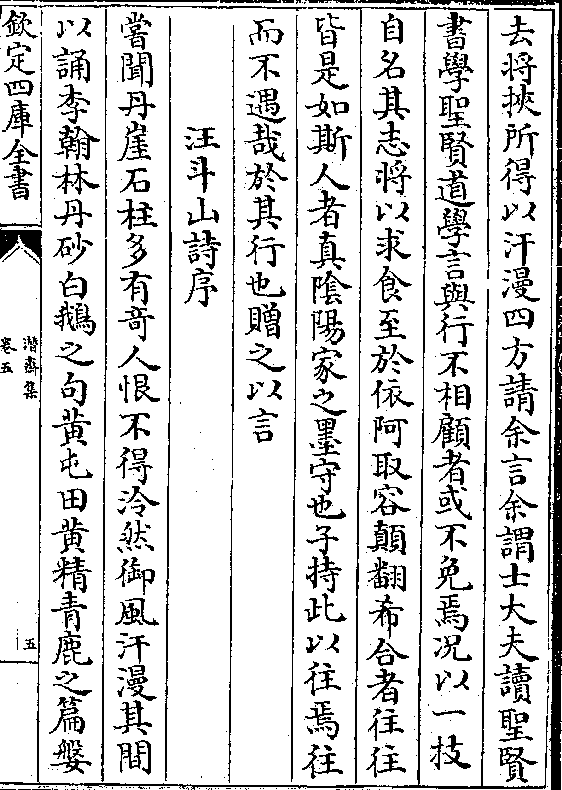 去将挾所得以汗漫四方請余言余謂士大夫讀聖賢
書學聖賢道學言與行不相顧者或不免焉况以一技
自名其志将以求食至於依阿取容顛翻希合者往往
皆是如斯人者真隂陽家之墨守也子持此以往焉往
而不遇哉於其行也贈之以言
汪斗山詩序
嘗聞丹崖石柱多有竒人恨不得泠然御風汗漫其間
以誦李翰林丹砂白鵝之句黄屯田黄精青鹿之篇槃
欽定四庫全書
潛齋集
卷五
五